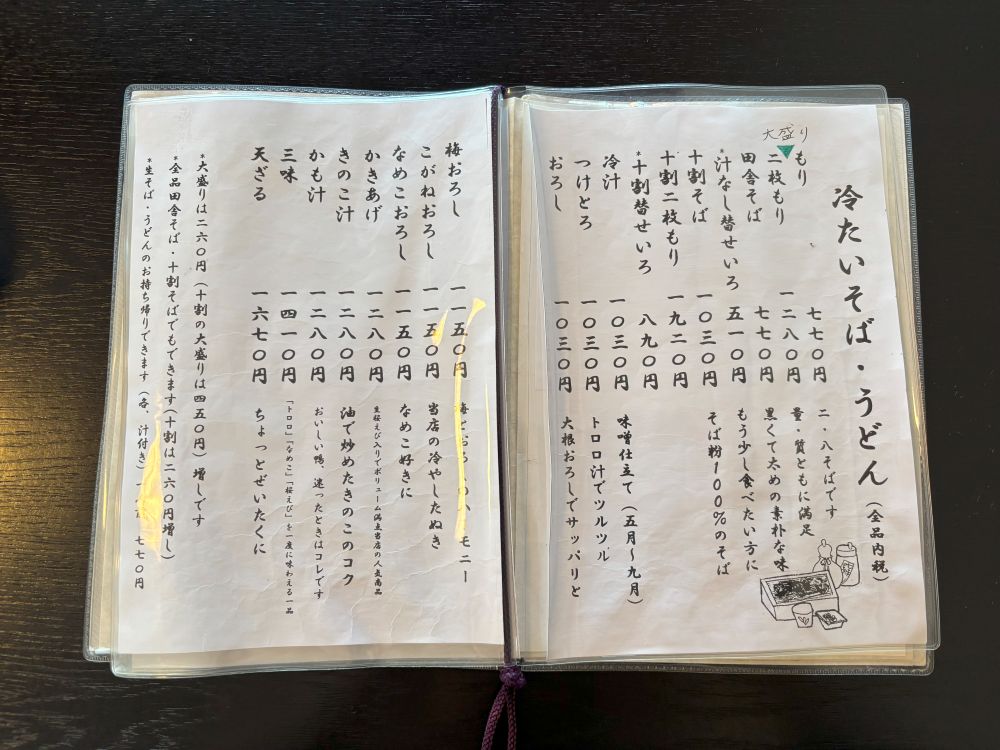 冷たいそば・うどん(全品内税)
大盛り
もり 七七〇円 二、八そばです
二枚もり 一二八〇円 量・質ともに満足
田舎そば 七七〇円 黒くて太めの素朴な味
*汁なし替せいろ 五一〇円 もう少し食べたい方に
十割そば 一〇三〇円 そば粉100%のそば
十割二枚もり 一九二〇円
*十割替せいろ 八九〇円
冷汁 一〇三〇円 味噌仕立て(五月〜九月)
つけとろ 一〇三〇円 トロロ汁でツルツル
おろし 一〇三〇円 大根おろしでサッパリと
梅おろし 一一五〇円 梅とおろしのハーモニー
こがねおろし 一一五〇円 当店の冷やしたぬき
なめこおろし 一一五〇円 なめこ好きに
かきあげ 一二八〇円 生桜えび入りでボリューム満点当店の人気商品
きのこ汁 一二八〇円 油で炒めたきのこのコク
かも汁 一二八〇円 おいしい鴨、迷ったときはコレです
三味 一四一〇円 「トロロ」「なめこ」「桜えび」を一度に味わえる一品
天ざる 一六七〇円 ちょっとぜいたくに
*大盛りは二六〇円(十割の大盛りは四五〇円)増しです
*全品田舎そば・十割そばでもできます(十割は二六〇円増し)
*生そば・うどんのお持ち帰りできます(各、汁付き) 七七〇円